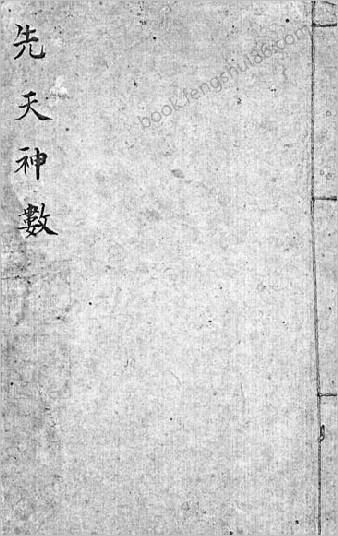 先天神數
book.fengshui86.com